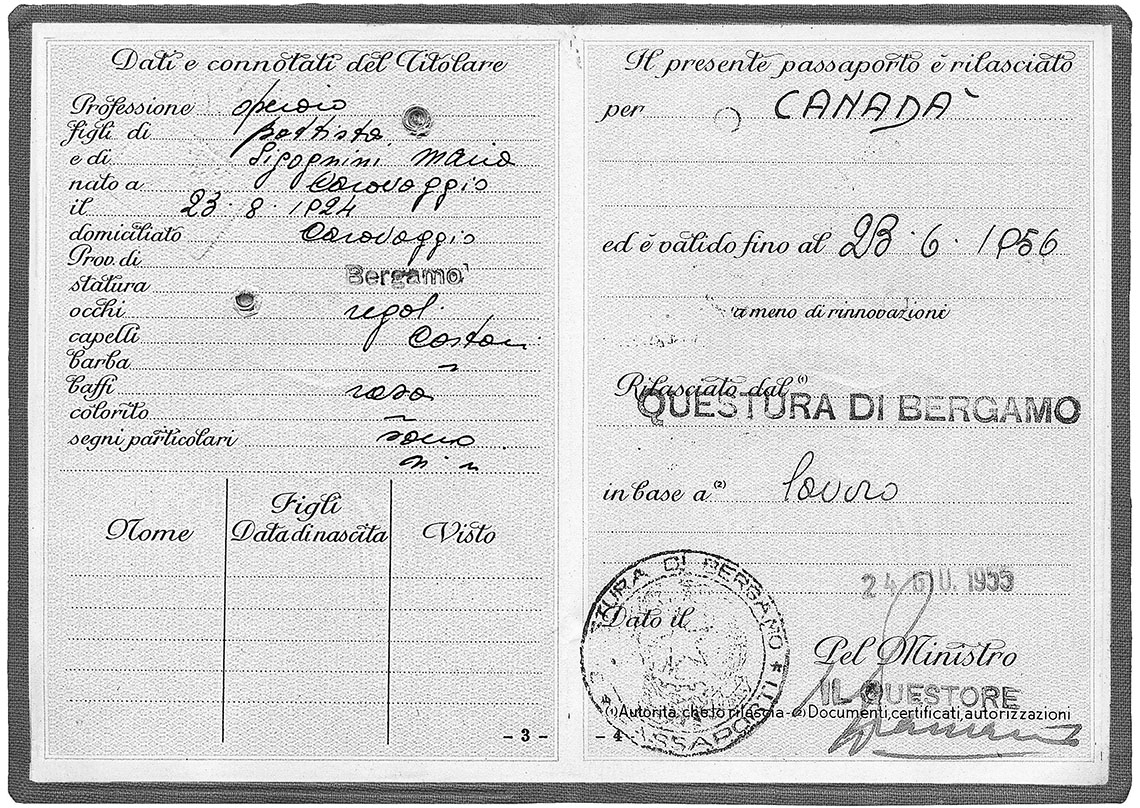 Dati e connotati del Titolare
Professione operaio
figli di Battista
e di Sigognini Maria
nato a Caravaggio
il 23.8.1924
domiciliato Caravaggio
Prov. di Bergamo
statura regol.
occhi castani
capelli "
barba rasa
baffi "
colorito sano
segni particolari n.n
Figli
Nome Data di nascita Visto
- 3 -
Il presente passaporto è rilasciato
per CANADÀ
ed è valido fino al 23.6.1956
a meno di rinnovazione
Rilasciato dal (1)
QUESTURA DI BERGAMO
in base a (2) lavoro
24 GIU. 1955
Dato il
QUESTURA DI BERGAMO
Pel Ministro
IL QUESTORE
(1) Autorità che lo rilascia - (2) Documenti, certificati, autorizzazioni
- 4 -